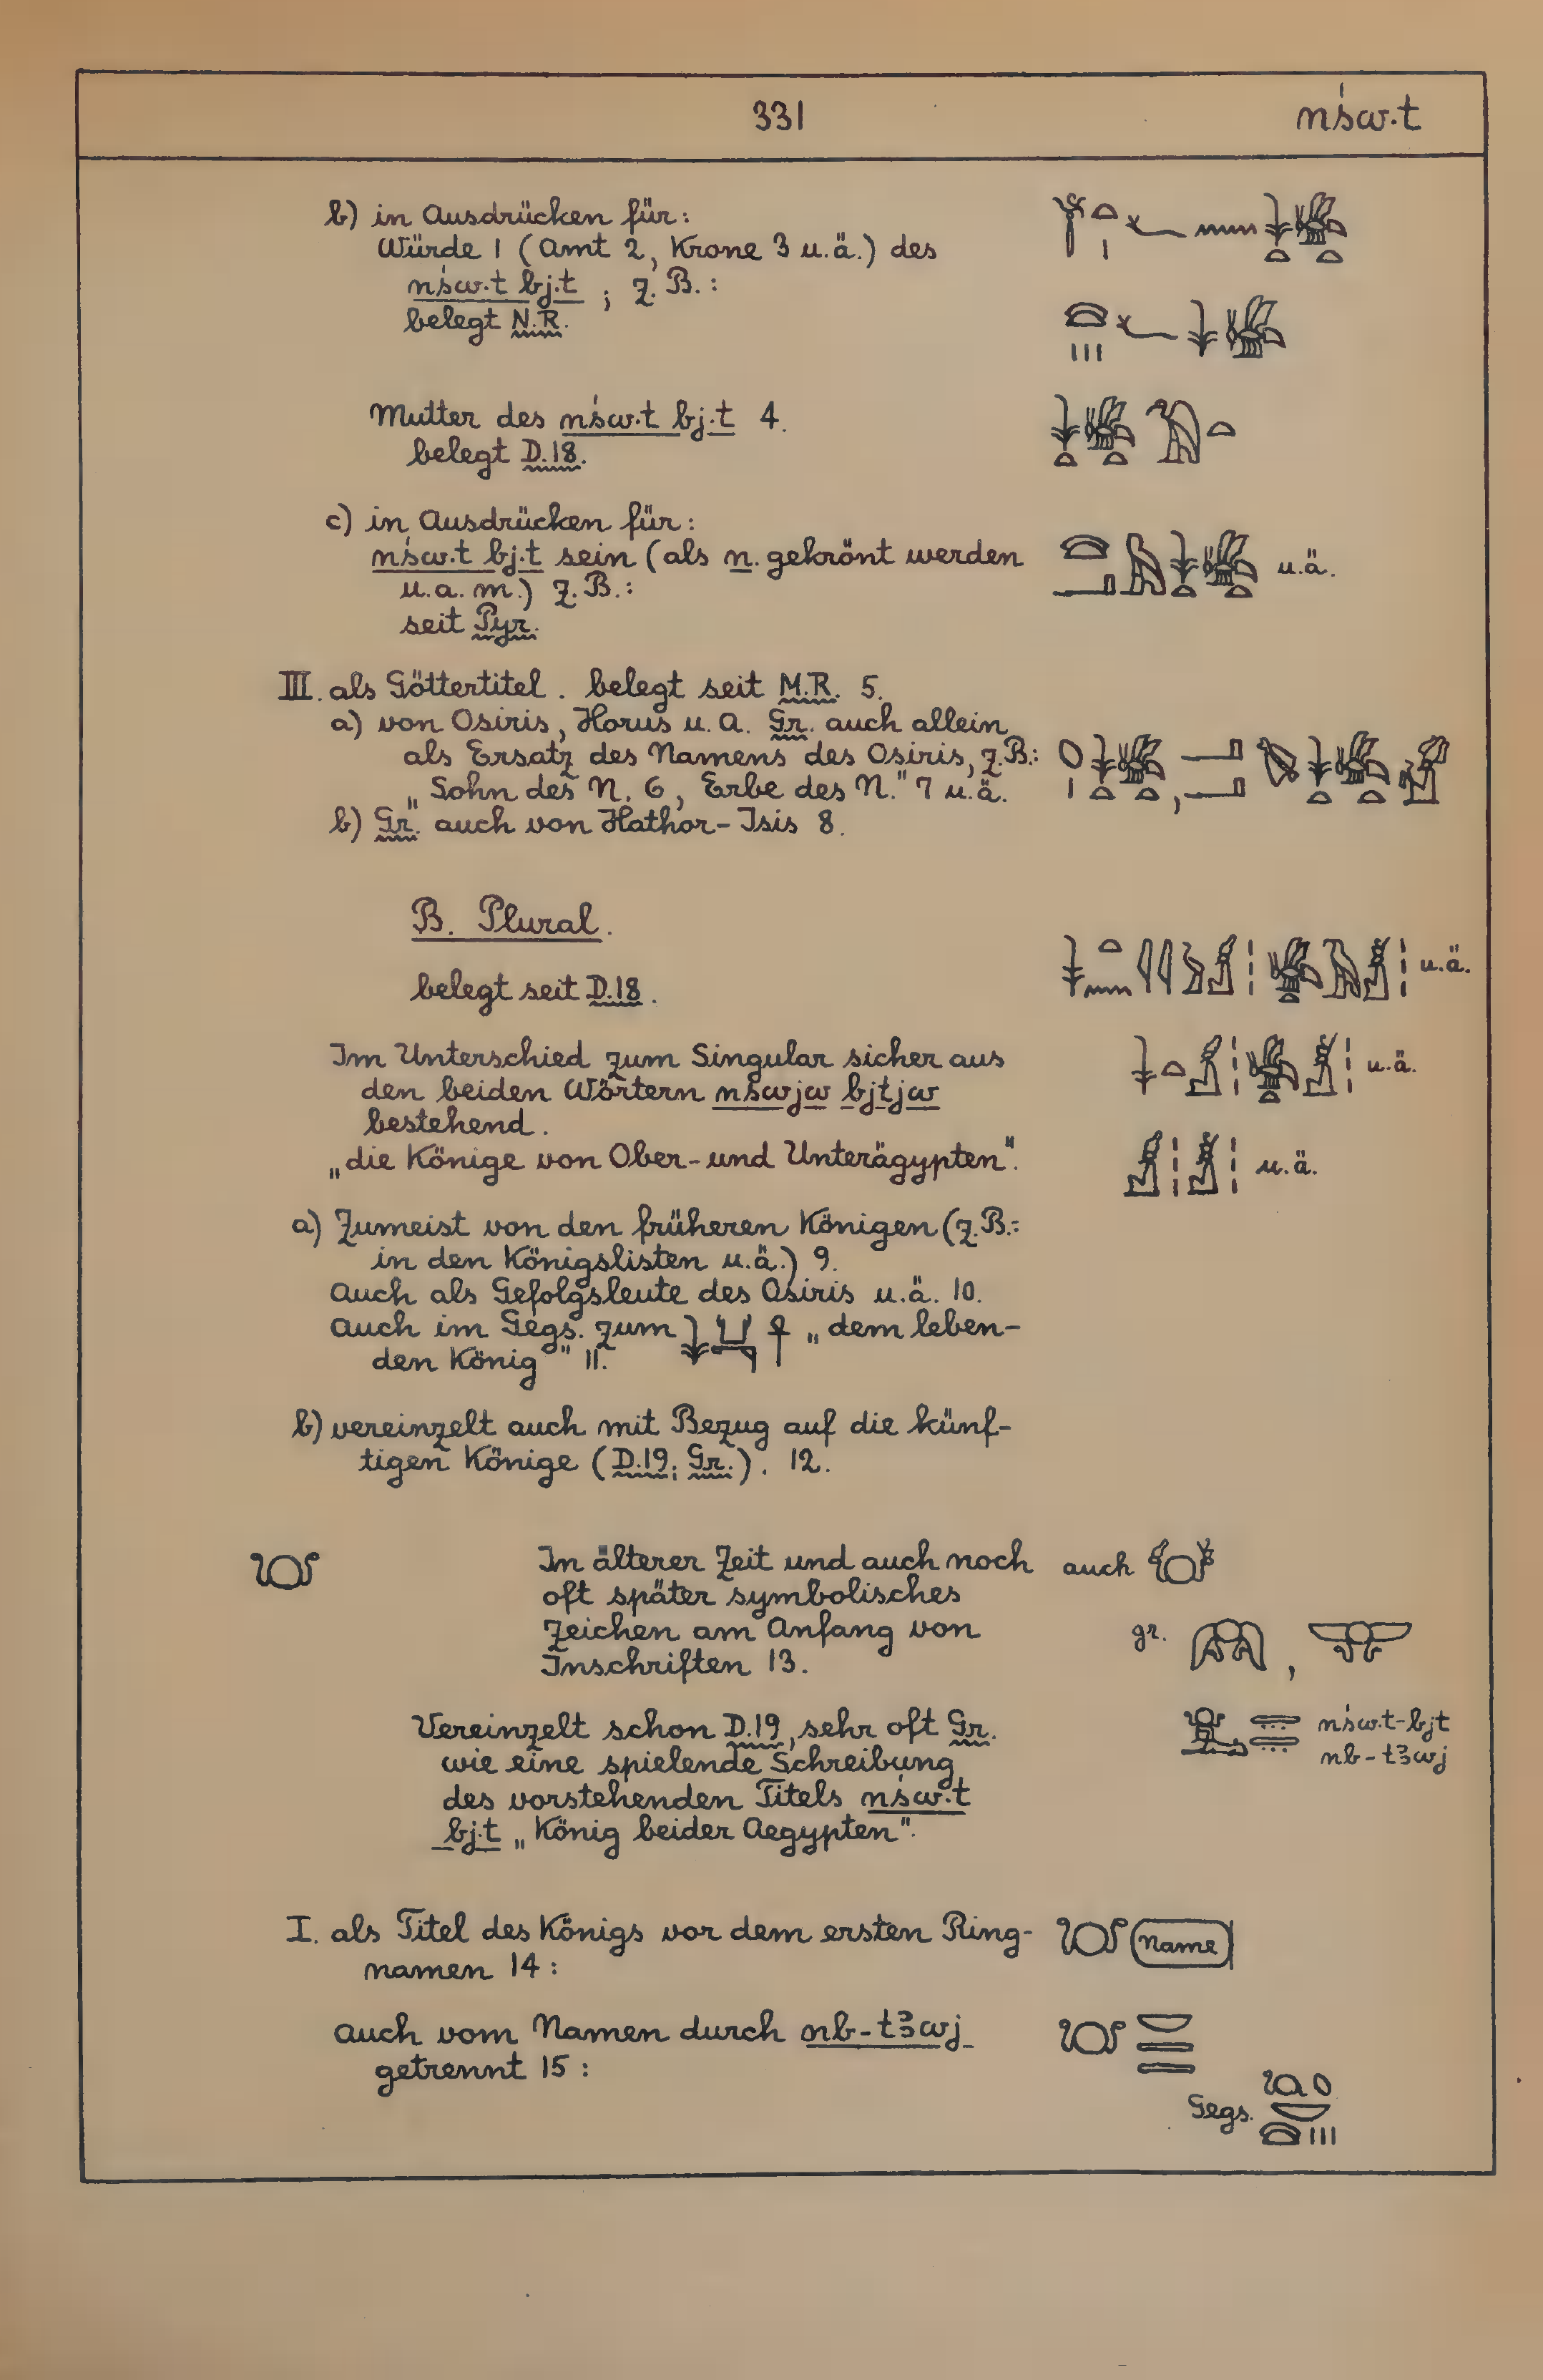 331 nśw.t
b) in Ausdrücken für:
Würde 1 (Amt 2, Krone 3 u.ä.) des
nśw.t bj.t ; z. B.:
belegt N.R.
Mutter des nśw.t bj.t 4.
belegt D.18.
c) in Ausdrücken für:
nśw.t bj.t sein (als n. gekrönt werden u.ä.
u.a.m.) z.B.:
seit Pyr.
III. als Göttertitel. belegt seit M.R. 5.
a) von Osiris, Horus u. A. Gr. auch allein
als Ersatz des Namens des Osiris, z.B.:
„Sohn des N. 6, Erbe des N." 7 u.ä.
b) Gr. auch von Hathor-Isis 8.
B. Plural.
u.ä.
belegt seit D.18.
Im Unterschied zum Singular sicher aus u.ä.
den beiden Wörtern nśwjw bjtjw
bestehend.
„die Könige von Ober- und Unterägypten". u.ä.
a) Zumeist von den früheren Königen (z.B.:
in den Königslisten u.ä.) 9.
Auch als Gefolgsleute des Osiris u.ä. 10.
Auch im Gegs. zum „dem leben-
den König" 11.
b) vereinzelt auch mit Bezug auf die künf-
tigen Könige (D.19; Gr.). 12.
In älterer Zeit und auch noch auch
oft später symbolisches
Zeichen am Anfang von gr. ,
Inschriften 13.
Vereinzelt schon D.19, sehr oft Gr. nśw.t-bjt
wie eine spielende Schreibung nb-tꜣwj
des vorstehenden Titels nśw.t
bj.t „König beider Aegypten".
I. als Titel des Königs vor dem ersten Ring- Name
namen 14:
auch vom Namen durch nb-tꜣwj
getrennt 15:
Gegs.